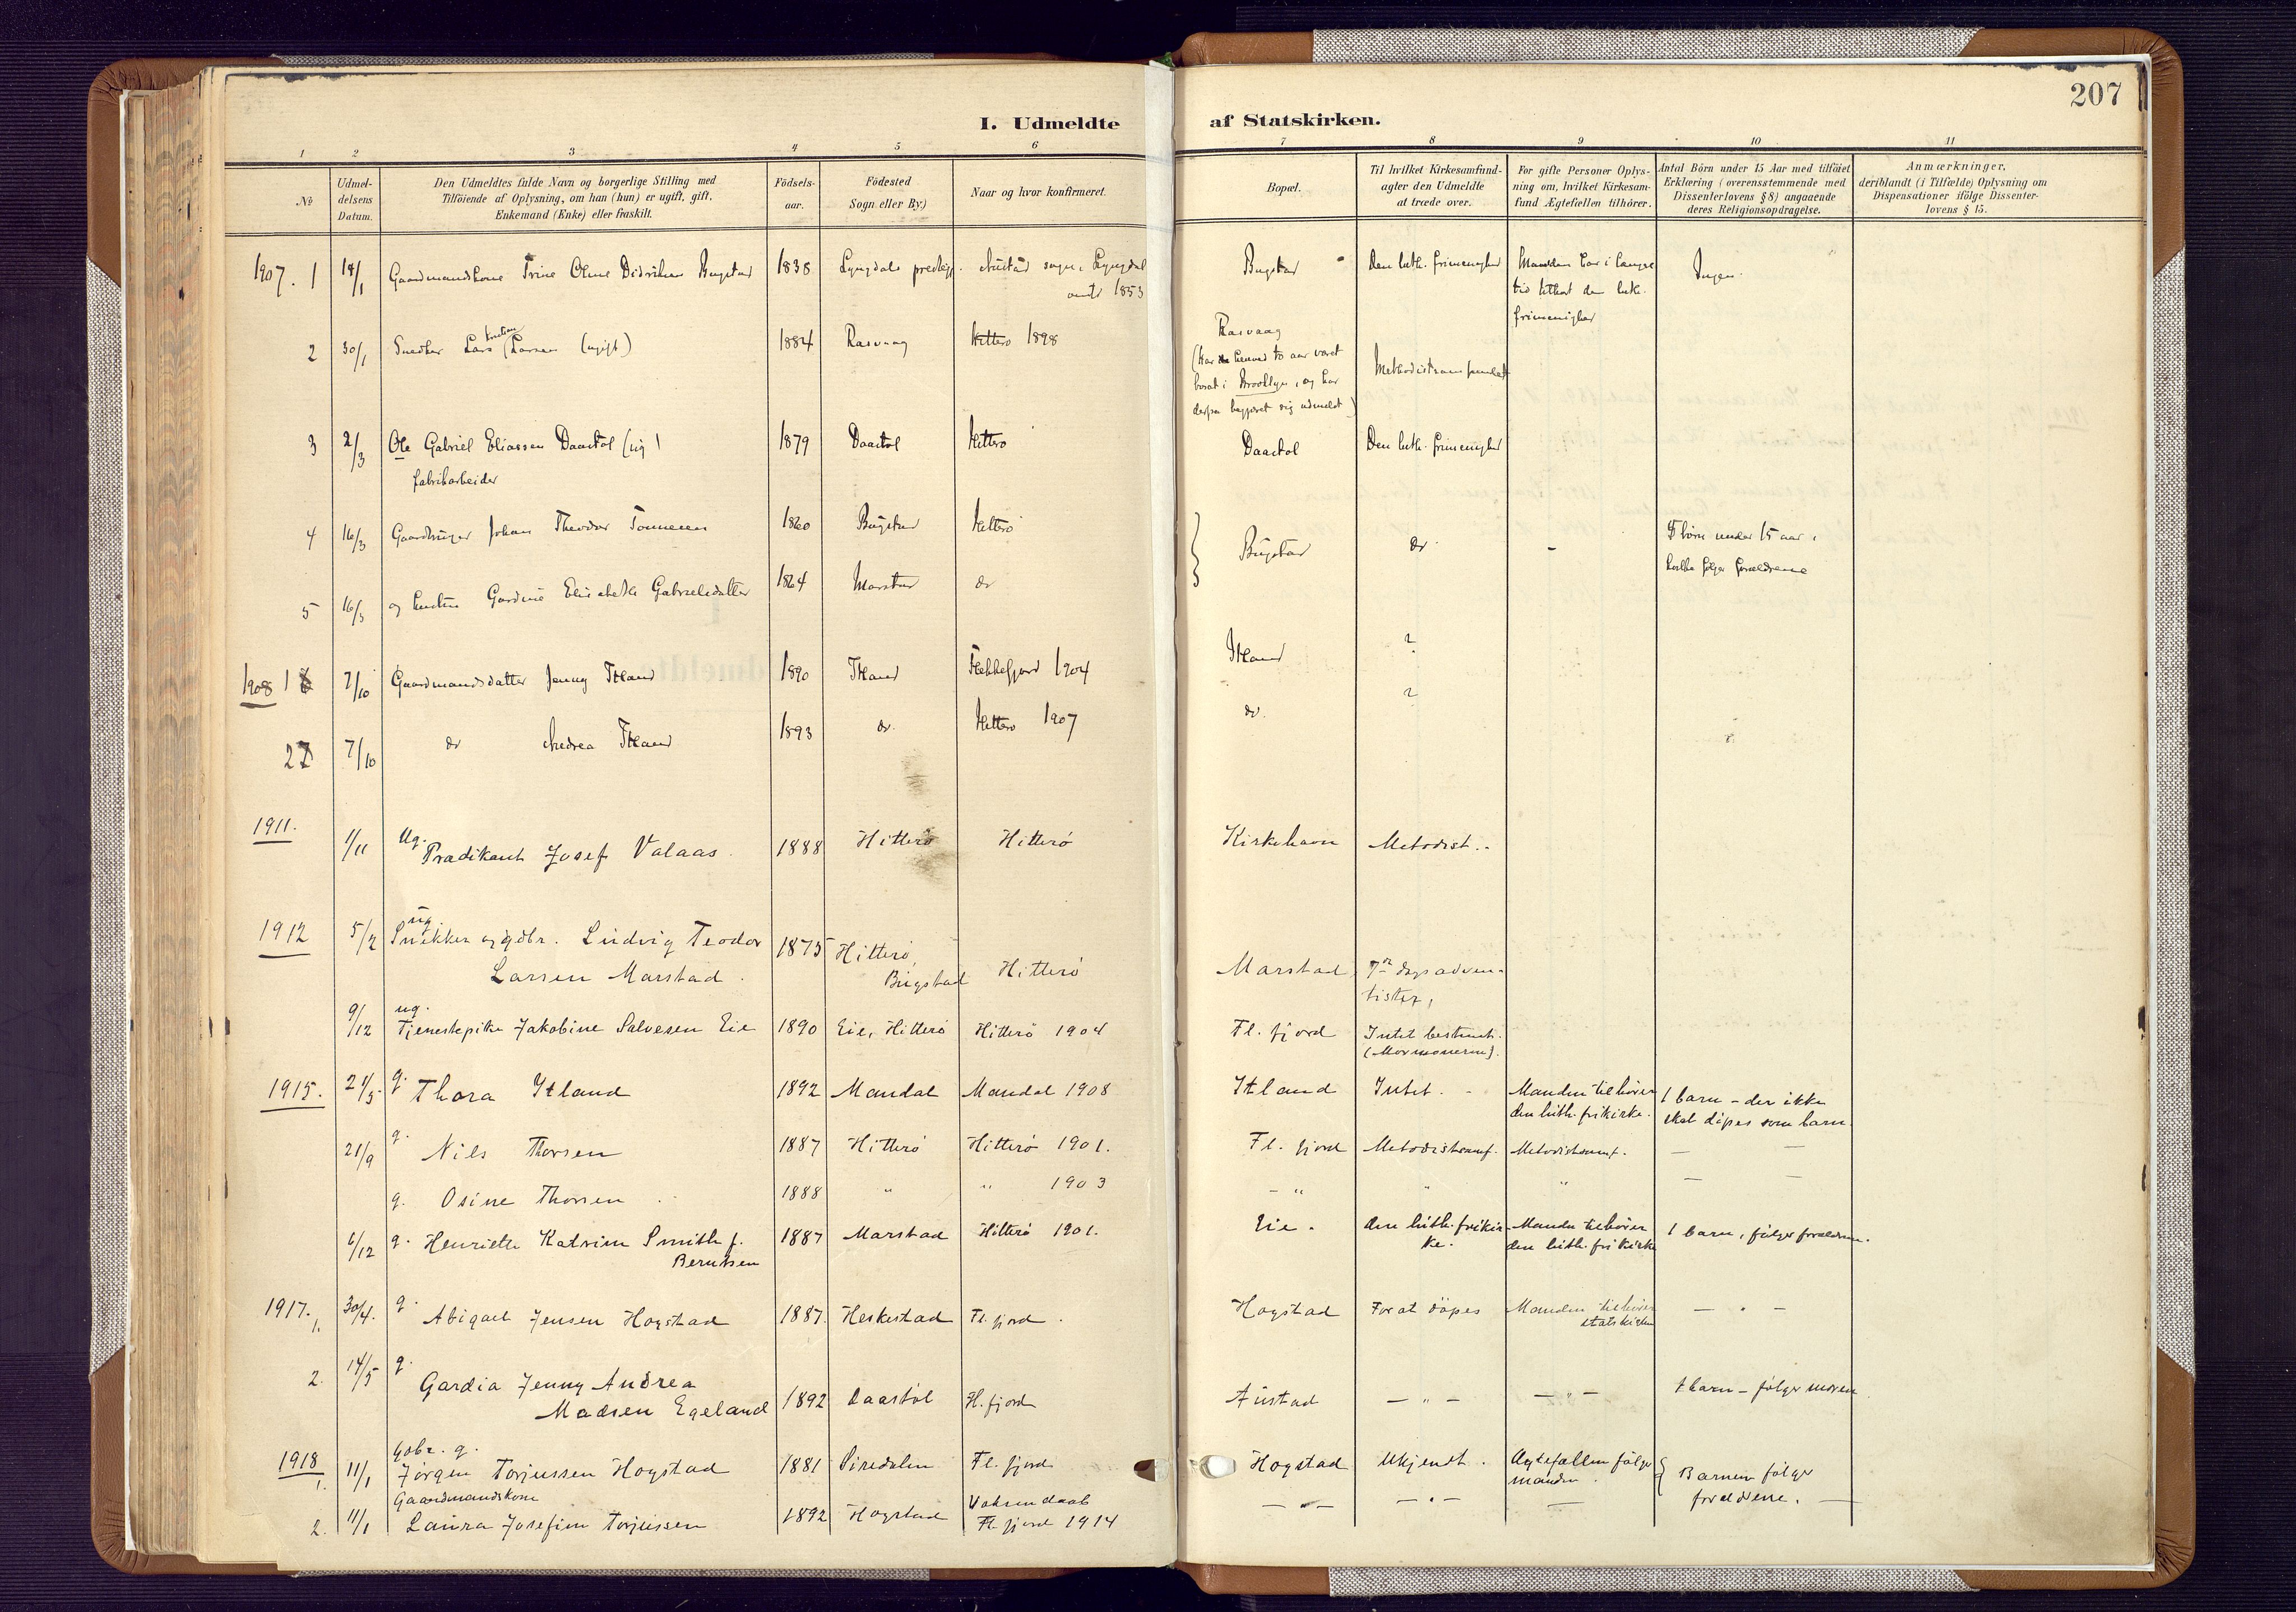 207
I. Udmeldte af Statskirken.
1 2 3 4 5 6 7 8 9 10 11
No
Udmeldelsens Datum.
Den Udmeldtes fulde Navn og borgerlige Stilling med
Tilföiende af Oplysning, om han (hun) er ugift, gift,
Enkemand (Enke) eller fraskilt.
Födsels-
aar.
Födested
Sogn eller By.)
Naar og hvor konfirmeret.
Bopæl.
Til hvilket Kirkesamfund
agter den Udmeldte
at træde over.
For gifte Personer Oplys-
ning om, hvilket Kirkesam-
fund Ægtefællen tilhörer.
Antal Börn under 15 Aar med tilföiet
Erklæring (overensstemmende med
Dissenterlovens § 8) angaaende
deres Religionsopdragelse.
Anmærkninger,
deriblandt (i Tilfælde) Oplysning om
Dispensationer ifölge Dissenter-
lovens § 15.
1907. 1 18/1 Gaardmandskone Trine Oline Didriksen Bugstad 1838 Lyngdals prestegj. Austad sogn i Lyngdal
1853
Bugstad Den luth. frimenighed Manden har i længre
tid tilhørt den luth.
frimenighed
Ingen.
2 30/1 Snedker Lars Larsen (ugift) 1884 Rasvaag Hitterø 1898
Rasvaag
(har henved to aar været
bosat i Brooklyn, og har
derfra begjæret sig udmeldt)
Methodistsamfundet
3 2/3 Ole Gabriel Eliassen Daastøl (ug)
fabrikarbeider
1879 Daastøl Hitterø Daastøl Den luth. frimenighed
4 16/3 Gaardbruger Johan Theodor Tønnesen 1860 Bugstad Hitterø Bugstad do -
5 børn under 15 aar,
hvilke følger forældrene
5 16/3 og hustru Gardine Elisabeth Gabrielsdatter 1864 Marstad do
1908 1 7/10 Gaardmandsdatter Jenny Itland 1890 Itland Flekkefjord 1904 Itland ?
2 7/10 do Andrea Itland 1893 do Hitterø 1907 do. ?
1911. 1/11 Ug. Prædikant Josef Valaas. 1888 Hitterø Hitterø Kirkehavn Metodist.
1912 5/2 ug. Snekker og gdbr. Ludvig Teodor
Larsen Marstad.
1875 Hitterø,
Bugstad
Hitterø Marstad 7de dags adven-
tister,
9/12 ug. Tjenestepike Jakobine Salvesen Eie 1890 Eie, Hitterø Hitterø 1904 Fl. fjord Intet bestemt.
(Mormonerne).
1915. 21/5 g. Thora Itland 1892 Mandal Mandal 1908 Itland Intet. - Manden tilhører
den luth. frikirke.
1 barn - der ikke
skal døpes som barn.
21/9 g. Nils Thorsen 1887 Hitterø Hitterø 1901. Fl. fjord Metodistsamf. Metodistsamf. — —
g. Osine Thorsen 1888 " " 1903 - " " " — —
6/12 g. Henriette Katrine Smith f.
Berntsen
1887 Marstad Hitterø 1901. Eie. den luth. frikir-
ke.
Manden tilhører
den luth. frikirke
1 barn, følger forældrene.
1917. 1. 30/4. g. Abigael Jensen Hogstad 1887. Heskestad Fl. fjord. Hogstad For at døpes Manden tilhører
statskirken
— " —
2. 14/5 g. Gardia Jenny Andrea
Madsen Egeland
1892 Daastøl Fl. fjord Austad — " — — " — 1 barn - følger moren
1918 1. 11/1 Gdbr. g.
Jørgen Torjussen Hogstad 1881 Siredalen Fl. fjord Hogstad Ukjendt. Ægtefællen følger
manden.
Barnene følger
forældrene. —
Gaardmandskone
2. 11/1 Laura Josefine Torjussen 1892 Hogstad Voksendaab
Fl. fjord 1914
— " — — " — —